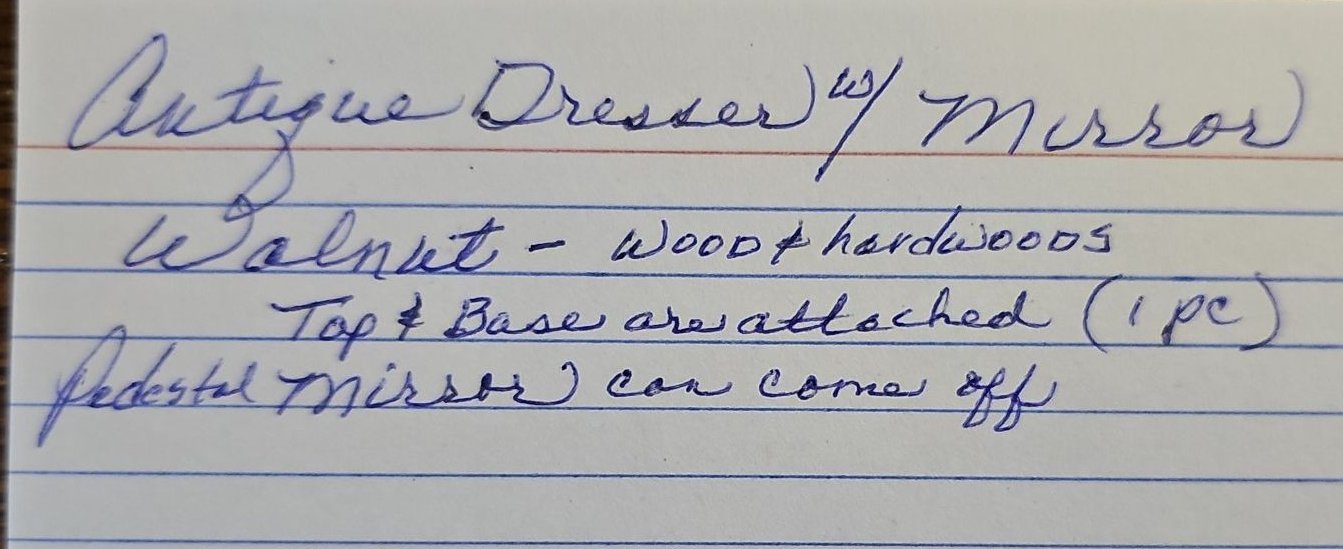 Antique Dresser w/ Mirror
Walnut - Wood & hardwoods
Top & Base are attached (1 pc)
pedestal Mirror can come off